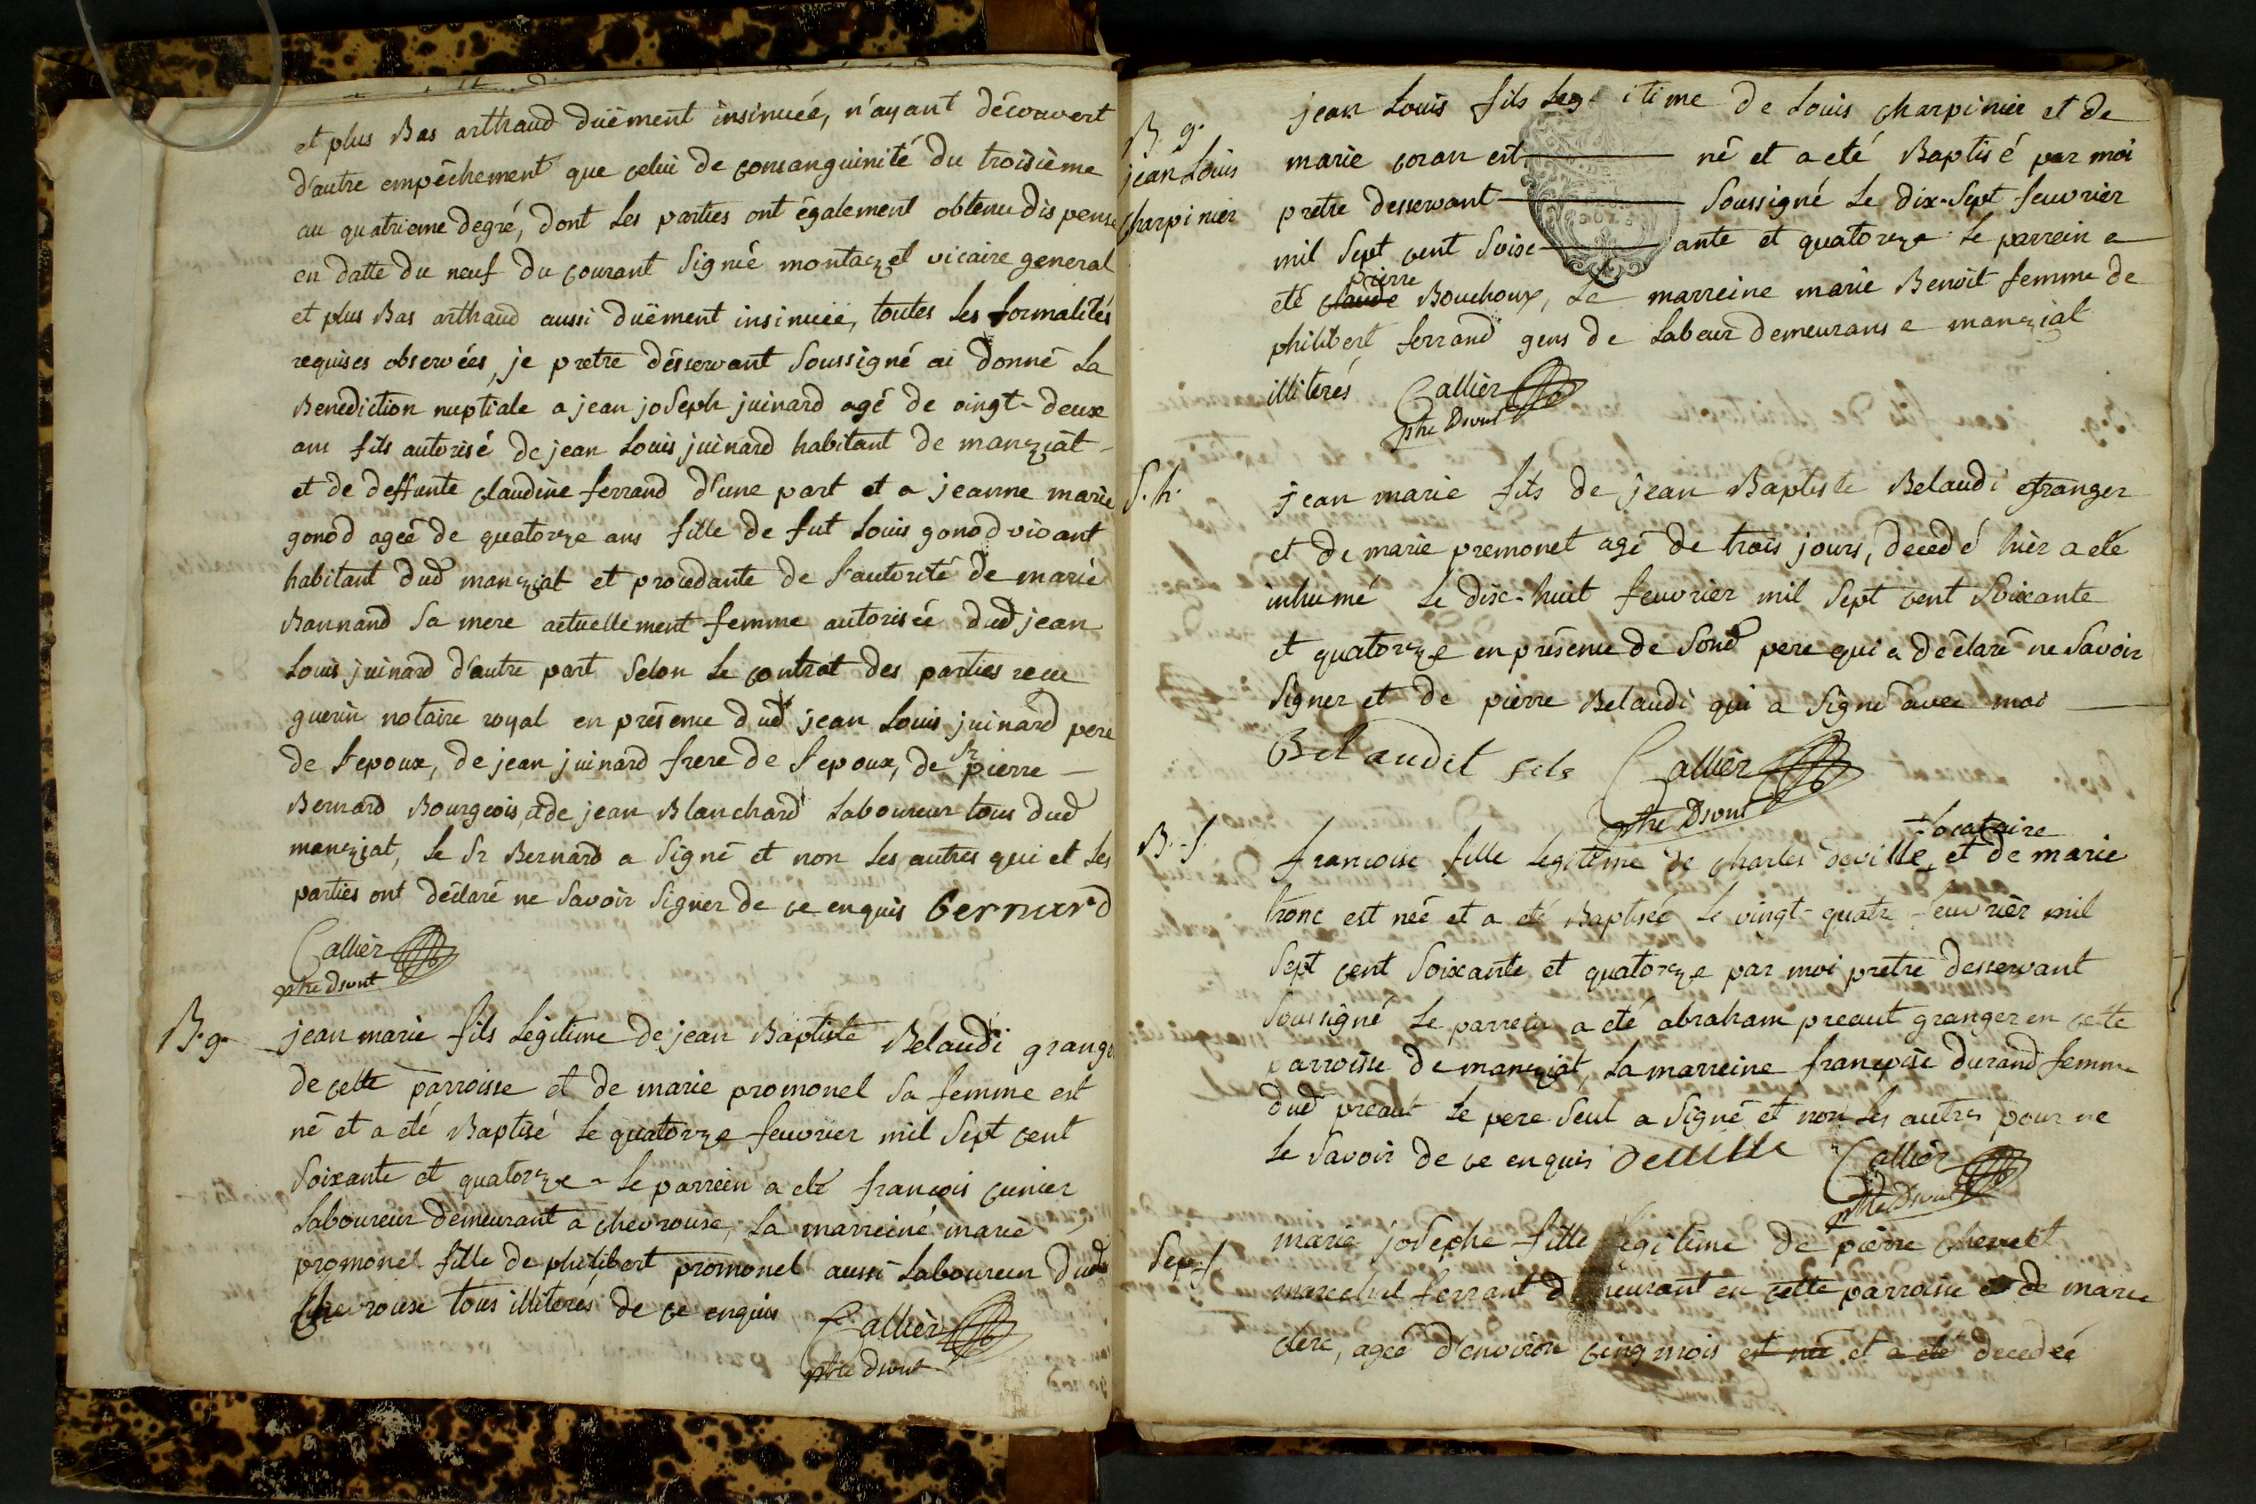 et plus Bas arthaud düement insinuée, n'ayant découvert
d'autre empêchement que celui de consanguinité du troisième
au quatrieme degré, dont les parties ont également obtenu dispense
en datte du neuf du courant signé montazet vicaire general
et plus Bas arthaud aussi duëment insinuée, toutes les formalités
requises observées, je pretre désservant soussigné ai donné la
Benediction nuptiale a jean joseph juinard agé de vingt-deux
ans fils autorisé de jean Louis juinard habitant de manziat
et de deffunte claudine ferrand d'une part et a jeanne marie
gonod ageé de quatorze ans fille de fut Louis gonod vivant
habitant dud manziat et procedante de l'autorité de marie
Bannand sa mere actuellement femme autorisée dud jean
Louis juinard d'autre part selon le contrat des parties recu
guerin notaire royal en présence dud jean Louis juinard pere
de l'epoux, de jean juinard frere de l'epoux, de sr pierre
Bernard Bourgeois, et de jean Blanchard laboureur tous dud
manziat, le Sr Bernard a signé et non les autres qui et les
parties ont déclaré ne savoir signer de ce enquis Bernard
Callier
ptre dsvnt
B. g. jean marie fils légitime de jean Baptiste Belaudi grange
de cette parroisse et de marie promonel sa femme est
né et a eté Baptisé le quatorze feuvrier mil sept cent
soixante et quatorze le parrein a eté francois cunier
laboureur demeurant a chevroux, la marreine marie
promonel fille de philibert promonel aussi laboureur dud
chevroux tous illiterés de ce enquis Callier
ptre dsvnt
B. g.
jean Louis
charpinier
jean Louis fils legitime de Louis charpinier et de
marie coran est né et a eté Baptisé par moi
pretre desservant soussigné le dix-sept feuvrier
mil sept cent soixante et quatorze le parrein a
eté claude pierre Bouchoux, la marreine marie Benoit femme de
philibert ferrand gens de labeur demeurans a manziat
illiterés Callier
ptre dsvnt
S. h.
jean marie fils de jean Baptiste Belaudi granger
et de marie premonet agé de trois jours, decedé hier a eté
inhumé le dix-huit feuvrier mil sept cent soixante
et quatorze en présence de sond pere qui a déclaré ne savoir
signer et de pierre Belaudi qui a signé avec moi
Belaudit fils Callier
ptre dsvnt
B. f.
locataire
francoise fille legitime de charles deville, et de marie
tronc est neé et a eté Baptisée le vingt-quatre feuvrier mil
sept cent soixante et quatorze par moi pretre desservant
soussigné le parrein a eté abraham preaut granger en cette
parroisse de manziat, la marreine françoise durand femme
dud preaut le pere seul a signé et non les autres pour ne
le savoir de ce enquis Deville Callier
ptre dsvnt
Sep. f.
marie josephe fille legitime de pierre chevret
marechal ferrant demeurant en cette parroisse et de marie
clerc, ageé d'environ cinq mois est née et a eté decedeé